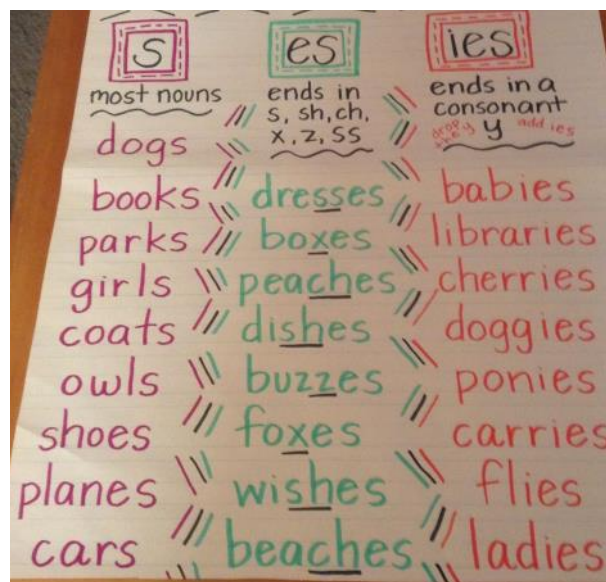 s
most nouns
dogs
books
parks
girls
coats
owls
shoes
planes
cars
es
ends in
s, sh, ch,
x, z, ss
dresses
boxes
peaches
dishes
buzzes
foxes
wishes
beaches
ies
ends in a
consonant
drop the y y add ies
babies
libraries
cherries
doggies
ponies
carries
flies
ladies